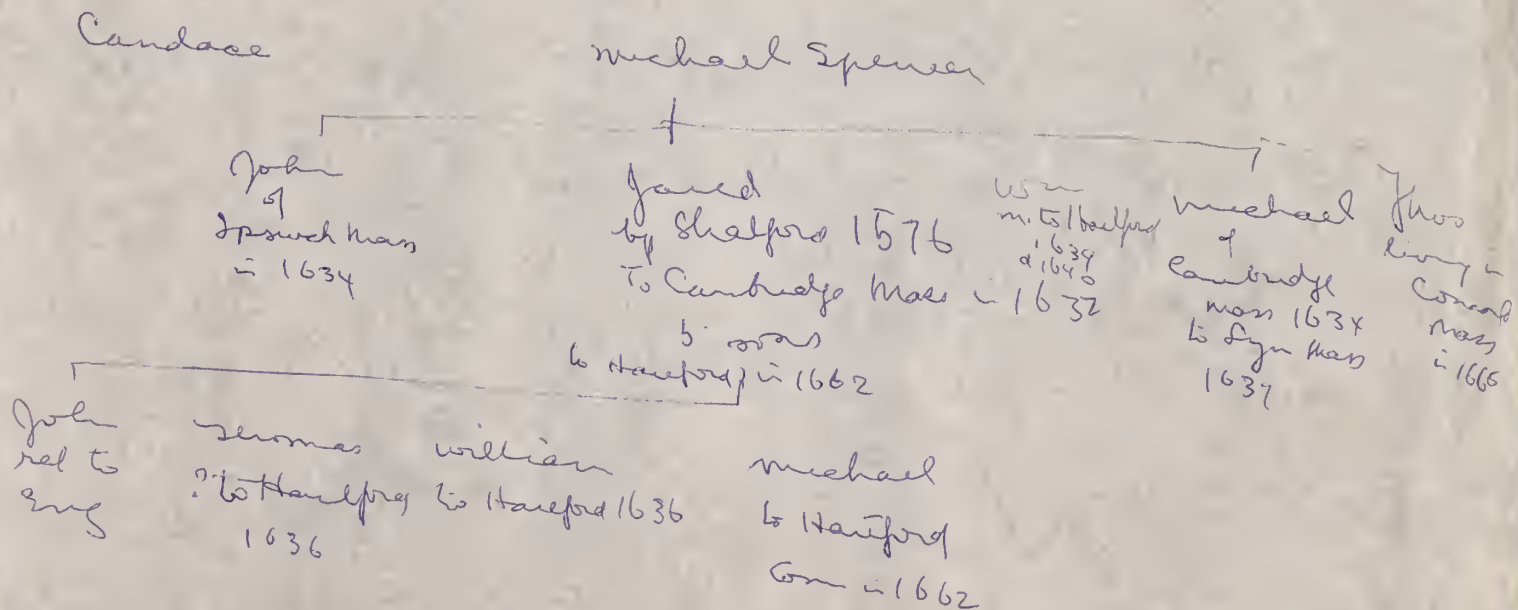 Candace
Michael Spencer
John
of
Ipswich Mass
in 1634
Jared
by Shalford 1576
To Cambridge Mass in 1632
5 sons
to Hartford in 1662
Wm
m. to Hartford
1639
d 1640
Michael
of
Cambridge
Mass 1634
to Lyn Mass
1637
Thos
living in
Concord
Mass
in 1666
John
ret to
Eng
Thomas
? to Hartford
1636
William
to Hartford 1636
Michael
to Hartford
Conn in 1662